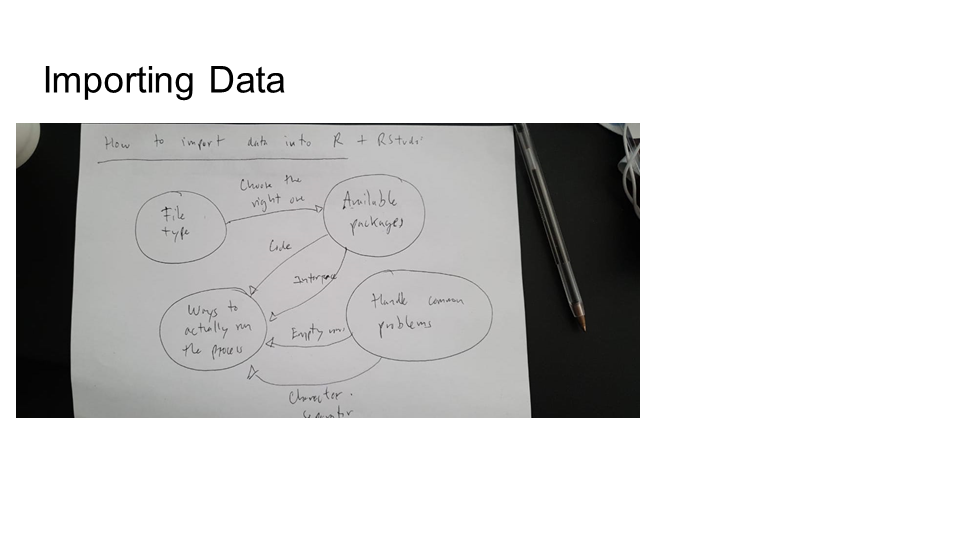 Importing Data
How to import data into R + RStudi
Choose the
right one
File
type
Available
packages
Code
Interface
Ways to
actually run
the process
Handle common
problems
Empty
Character
separator